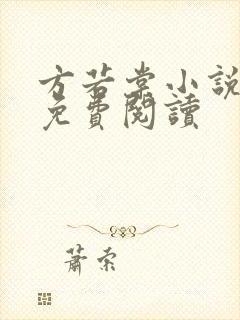 方若棠小說
免費閱讀
蕭索